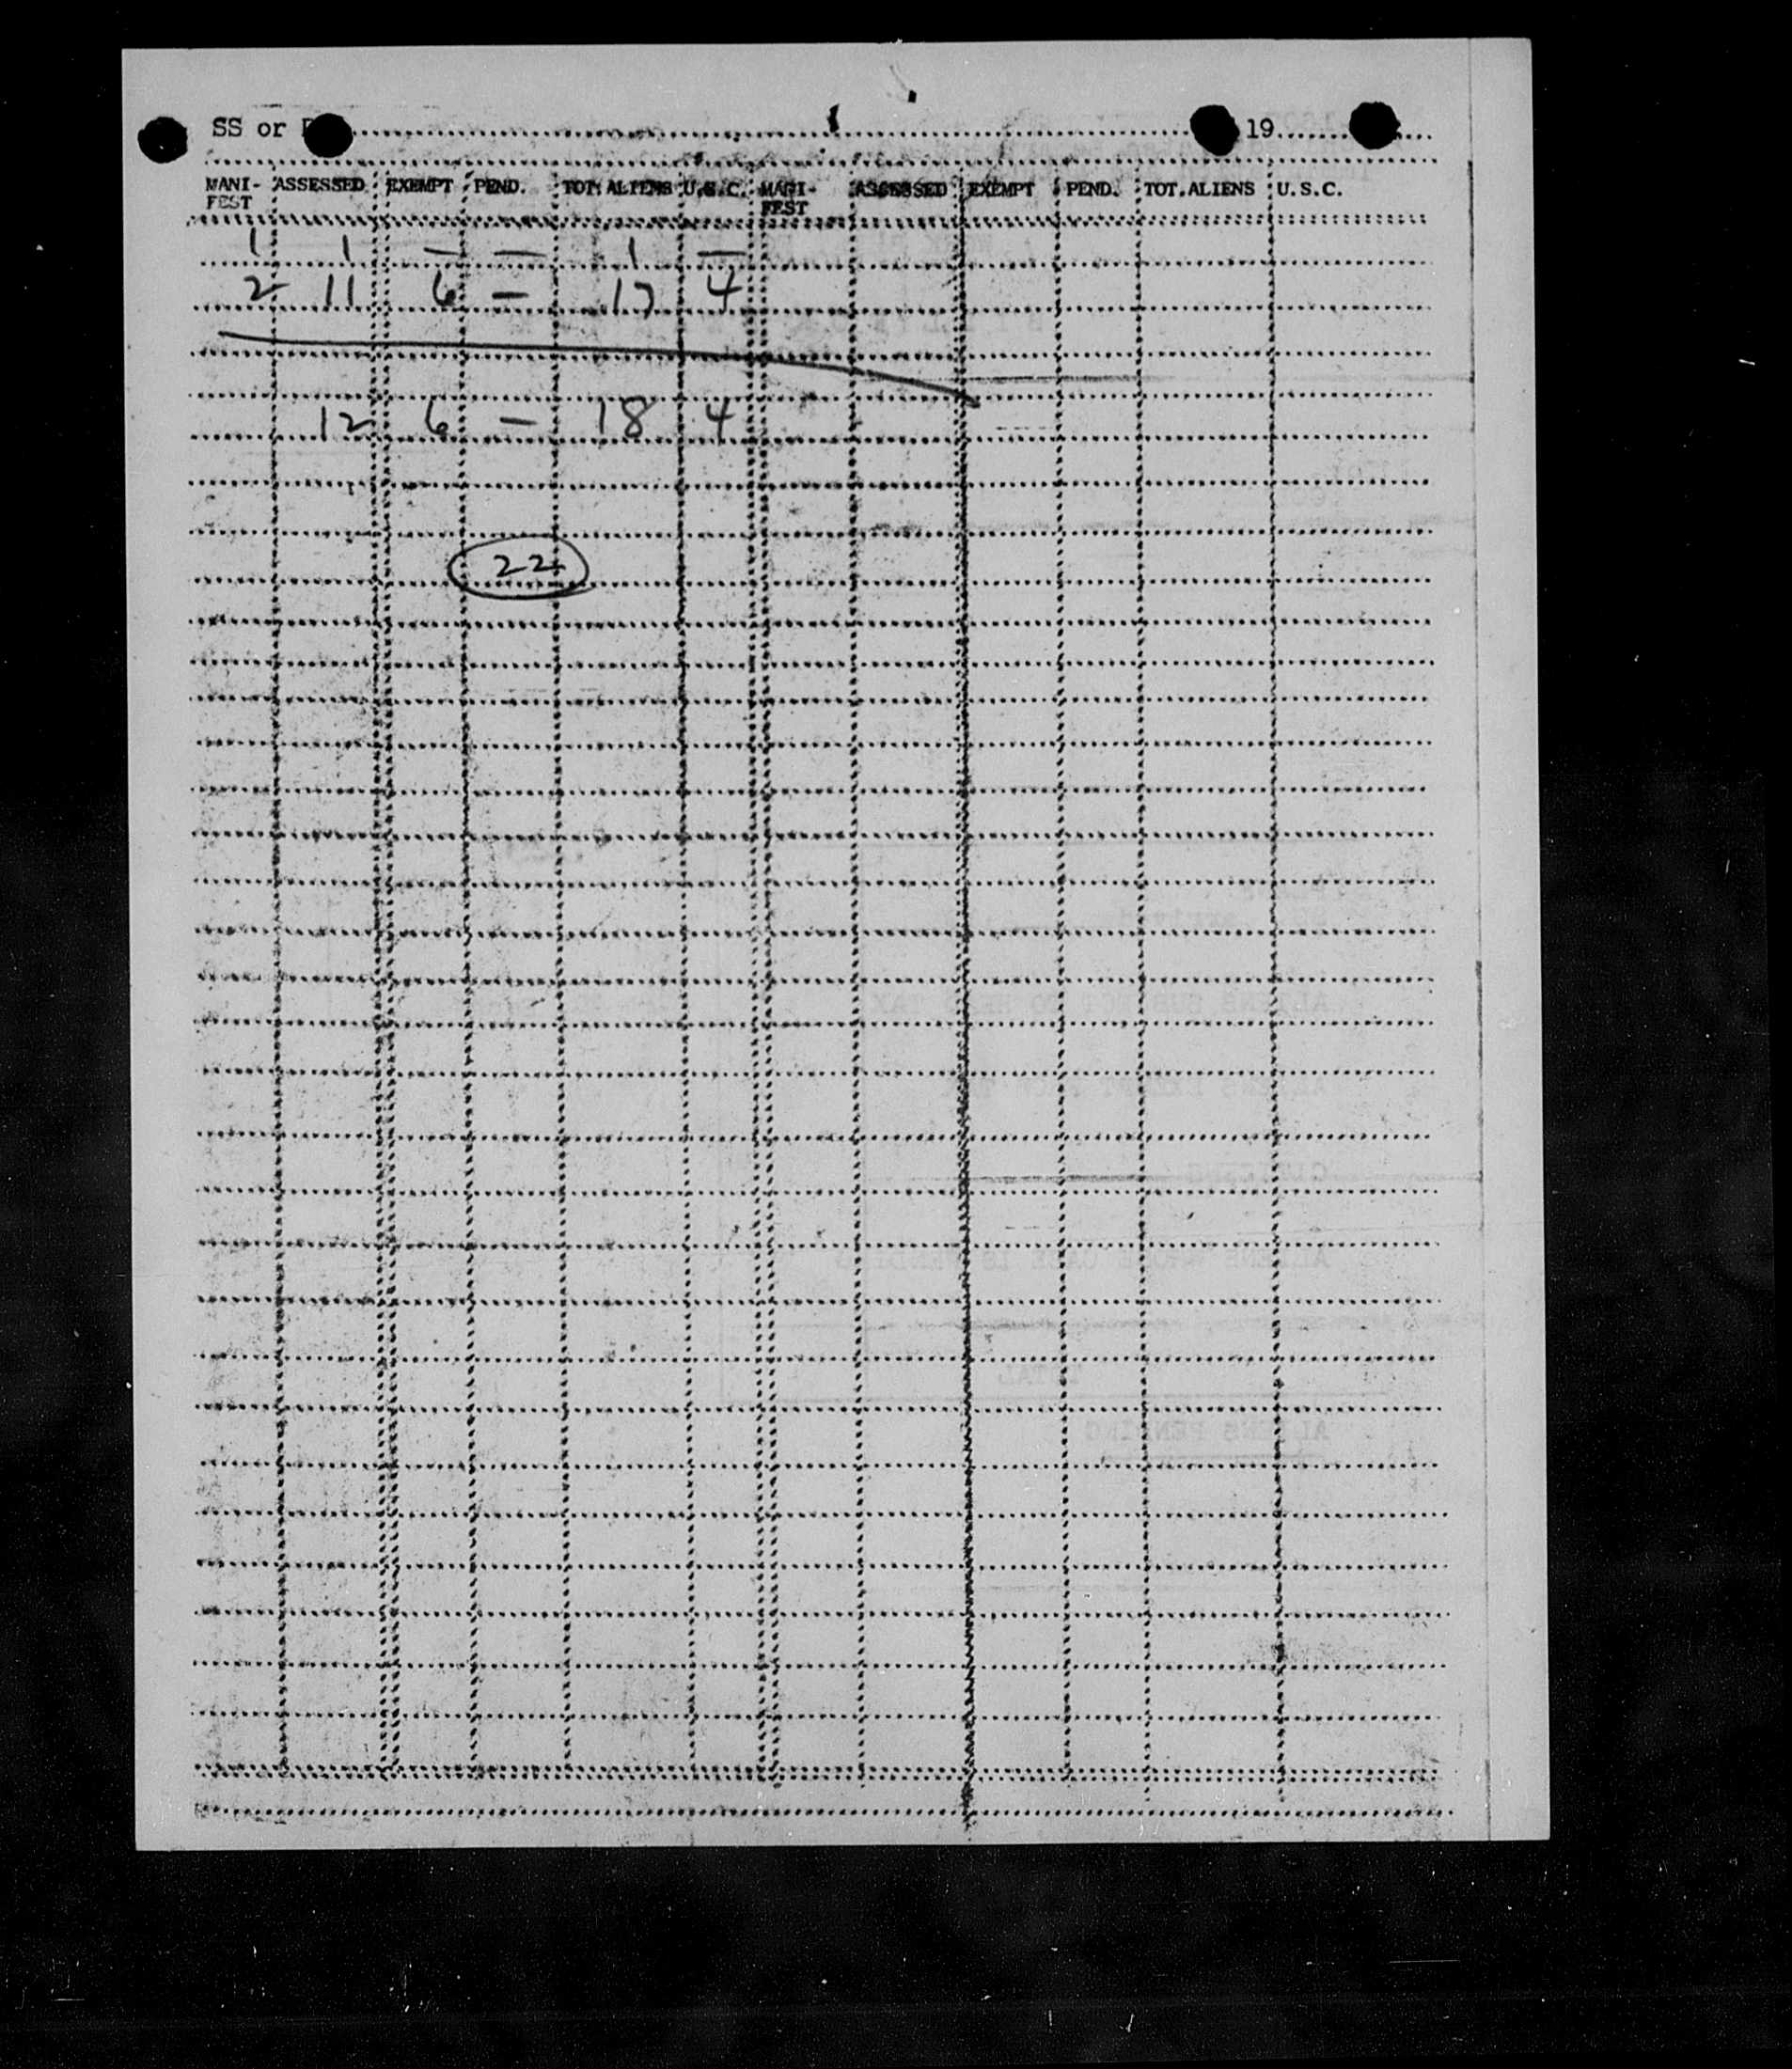 SS or 19
MANI- ASSESSED EXEMPT PEND. TOT. ALIENS U.S.C. MANI- ASSESSED EXEMPT PEND. TOT. ALIENS U.S.C.
FEST FEST
1 1 — — 1 —
2 11 6 — 17 4
12 6 — 18 4
22
ALIENS PENDING